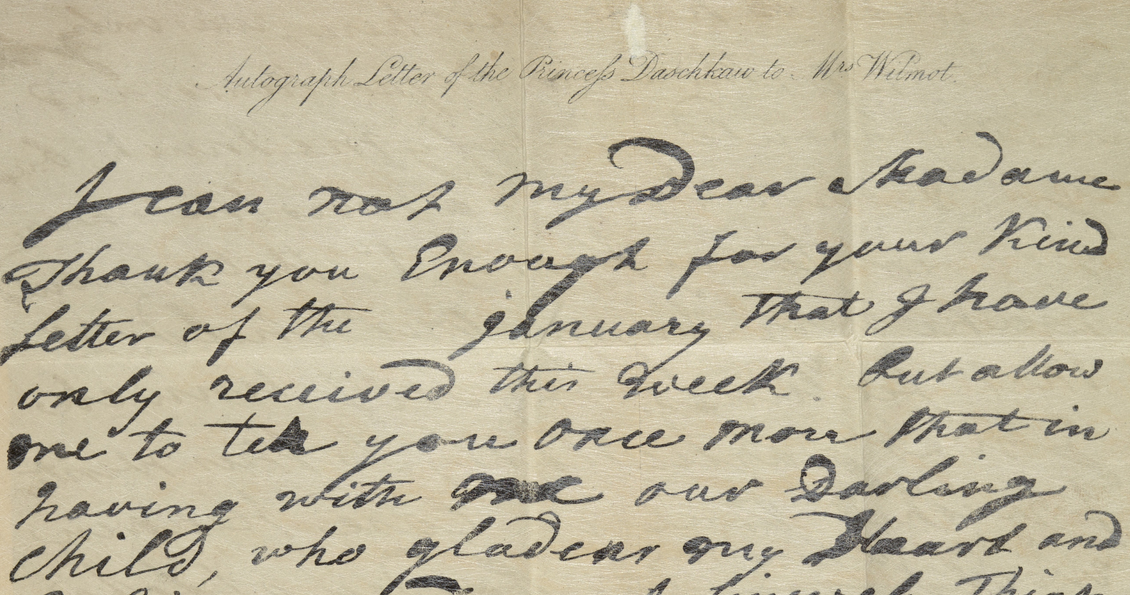 Autograph Letter of the Princess Daschkaw to Mrs Wilmot.
I can not my Dear Madame
Thank you Enough for your Kind
letter of the january that I have
only received this week. But allow
me to tell you once more that in
having with me our Darling
child, who gladens my Heart and